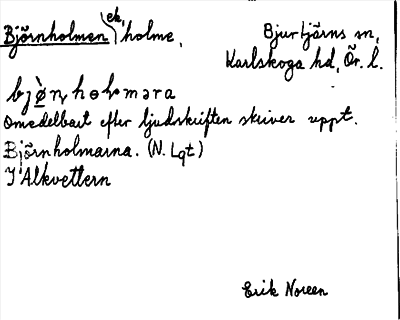 Björnholmen ek, holme,
Bjurtjärns sn,
Karlskoga hd, Ör. l.
omedelbart efter ljudskriften skriver uppt.
Björnholmarna. (N. Lgt)
I Alkvettern
Erik Noreen